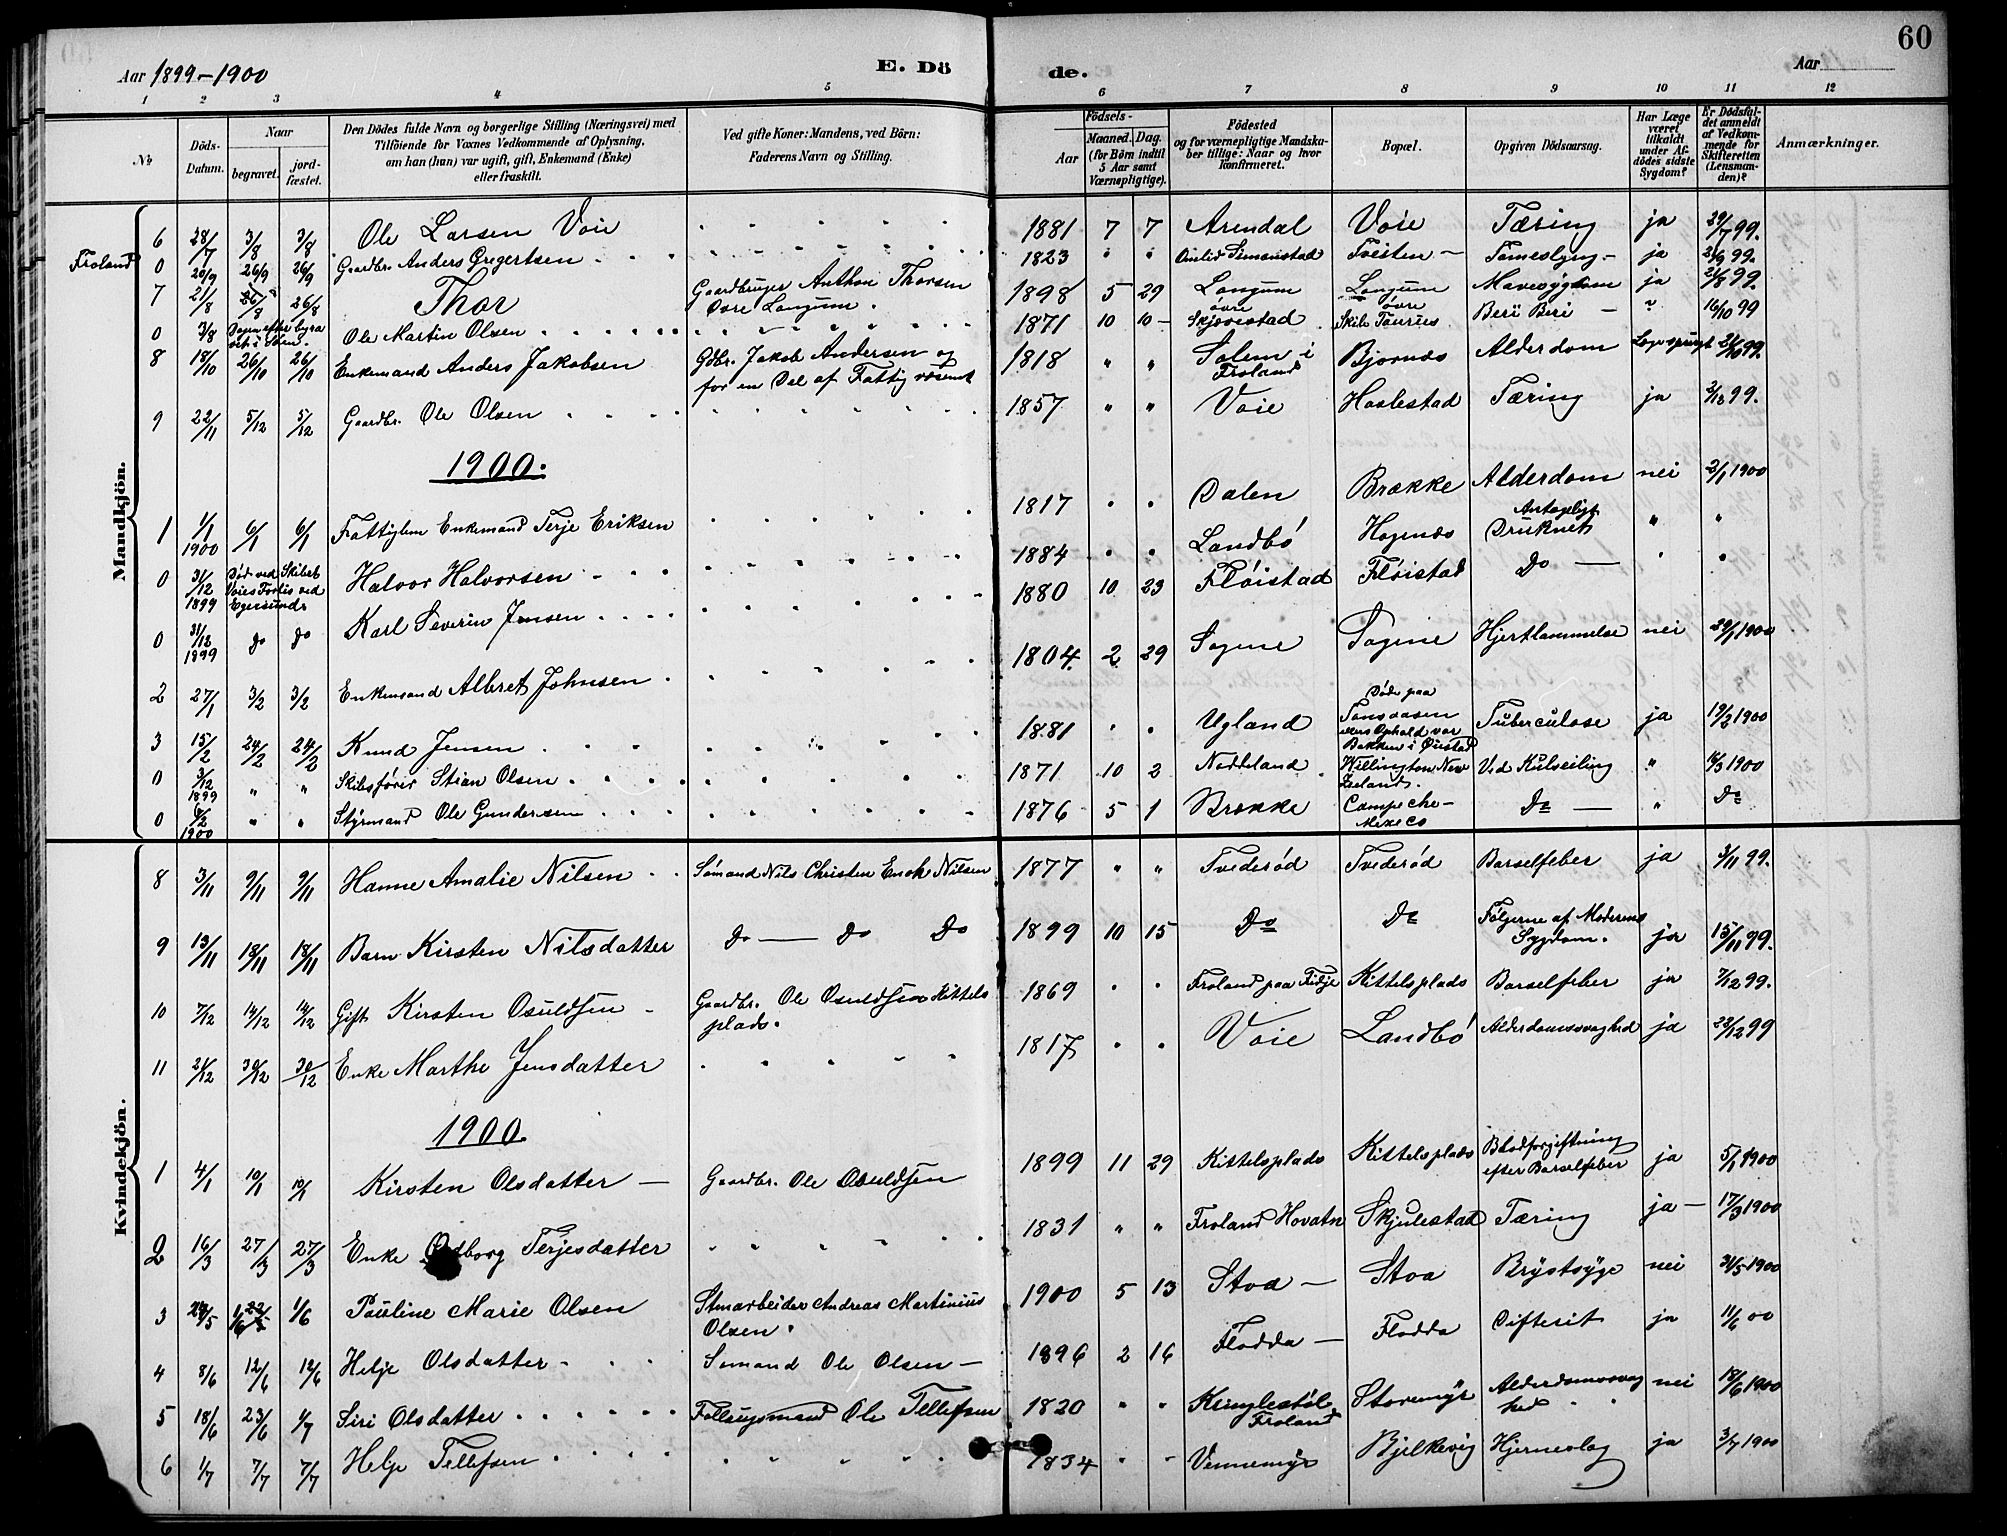 60
Aar 1899-1900
E. Dö
de.
Aar
1 2 3 4 5 6 7 8 9 10 11 12
No
Döds-Datum.
Naar
begravet.
jord-fæstet.
Den Dödes fulde Navn og borgerlige Stilling (Næringsvei) med
Tilföiende for Voxnes Vedkommende af Oplysning,
om han (hun) var ugift, gift, Enkemand (Enke)
eller fraskilt.
Ved gifte Koner: Mandens, ved Börn:
Faderens Navn og Stilling.
Födsels-
Aar
Maaned. Dag.
(for Börn indtil
5 Aar samt
Værnepligtige).
Födested
og for værnepligtige Mandska-
ber tillige: Naar og hvor
konfirmeret.
Bopæl.
Opgiven Dödsaarsag.
Har Læge
været
tilkaldt
under Af-
dödes sidste
Sygdom?
Er Dödsfal-
det anmeldt
af Vedkom-
mende for
Skifteretten
(Lensman-
den)?
Anmærkninger.
Mandkjön.
6 28/7 3/8 3/8 Ole Larsen Voie 1881 7 7 Arendal Voie Tæring ja 29/7 99.
Froland 0 20/9 26/9 26/9 Gaardbr. Anders Gregertsen 1823 " " Omlid Simonstad Tvesten - ja 99.
7 21/8 26/8 26/8 Thor Gaardbruger Anthon Thorsen 1898 5 29 Longum Longum Mavesygdom ja 99.
Øvre Longum. øvre øvre
0 3/8 Dagen efter begra Ole Martin Olsen 1871 10 10 - Skjævestad Skib Beri Beri - " 16/10 99
8 18/10 26/10 26/10 Enkemand Anders Jakobsen Gdbr. Jakob Andersen og 1818 " " Solem i Bjornes Alderdom 99.
for en Del af Fattigvæsenet Froland
9 22/11 5/12 5/12 Gaardbr. Ole Olsen 1857 " " Voie Haslestad Tæring ja 99.
1900.
1 1/1 1900 6/1 6/1 Fattiglem Enkemand Terje Eriksen 1817 " " Dalen Brække Alderdom nei 2/1 1900
0 31/12 1899 Död ved Skibet Halvor Halvorsen 1884 " " Landbö Hagenes Antageligt Druknet " "
Voies Forlis ved
Egersund.
0 31/12 1899 do do Karl Severin Jensen 1880 10 23 Flöistad Flöistad Do - " "
2 27/1 3/2 3/2 Enkemand Albret Johnsen 1804 2 29 Sagene Sagene Hjertlammelse nei 29/1 1900
3 15/2 24/2 24/2 Knud Jensen 1881 " " Ugland Døde paa Tuberculose ja 19/2 1900
Tonsaasen
Ophold var
Bakken i Øiestad
0 3/12 1899 " " Skibsförer Stian Olsen 1871 10 2 Nedeland Willington New Ved Kulseiling " 1900
Zeeland.
0 2/2 1900 " " Styrmand Ole Gundersen 1876 5 1 Brække Campeche - Do - " Do
Mexeco
Kvindekjön.
8 3/11 9/11 9/11 Hanne Amalie Nilsen Sömand Nils Christen Enok Nilsen 1877 " " Tvederöd Tvederöd Barselfeber ja 3/11 99.
9 13/11 18/11 18/11 Barn Kirsten Nilsdatter Do - Do Do 1899 10 15 Do Do Fölgerne af Moderens ja 15/11 99.
Sygdom.
10 7/12 14/12 14/12 Gift Kirsten Osuldsen Gaardbr. Ole Osuldsen Kittels 1869 " " Froland paa Fidje Kittelsplads Barselfeber ja 7/12 99.
plads.
11 21/12 30/12 30/12 Enke Marthe Jensdatter 1817 " " Voie Landbö Alderdomssvaghed ja 22/12 99
1900.
1 4/1 10/1 10/1 Kirsten Olsdatter - Gaardbr. Ole Osuldsen 1899 11 29 Kittelsplads Kittelsplads Blodforgiftning ja 5/1 1900
efter Barselfeber
2 16/3 27/3 27/3 Enke Terjesdatter 1831 " " Froland Hovatn Skjulestad Tæring ja - 17/3 1900
3 1/6 1/6 Pauline Marie Olsen Stenarbeider Andreas Martinius 1900 5 13 Stoa - Stoa Brystsyge nei 31/5 1900
Olsen.
4 8/6 12/6 12/6 Helje Olsdatter Sömand Ole Olsen - 1896 2 16 Flodda - Flodda Difterit ja 11/6 00
5 18/6 23/6 1/7 Siri Olsdatter Ole Tellefsen 1820 " " Kringlestöl Storemyr Alderdomssvag nei 18/6 1900
Froland hed
6 1/7 7/7 7/7 Helje Tellefsen 1834 " " Vennemyr Bjelkevig Hjerneslag ja 3/7 1900